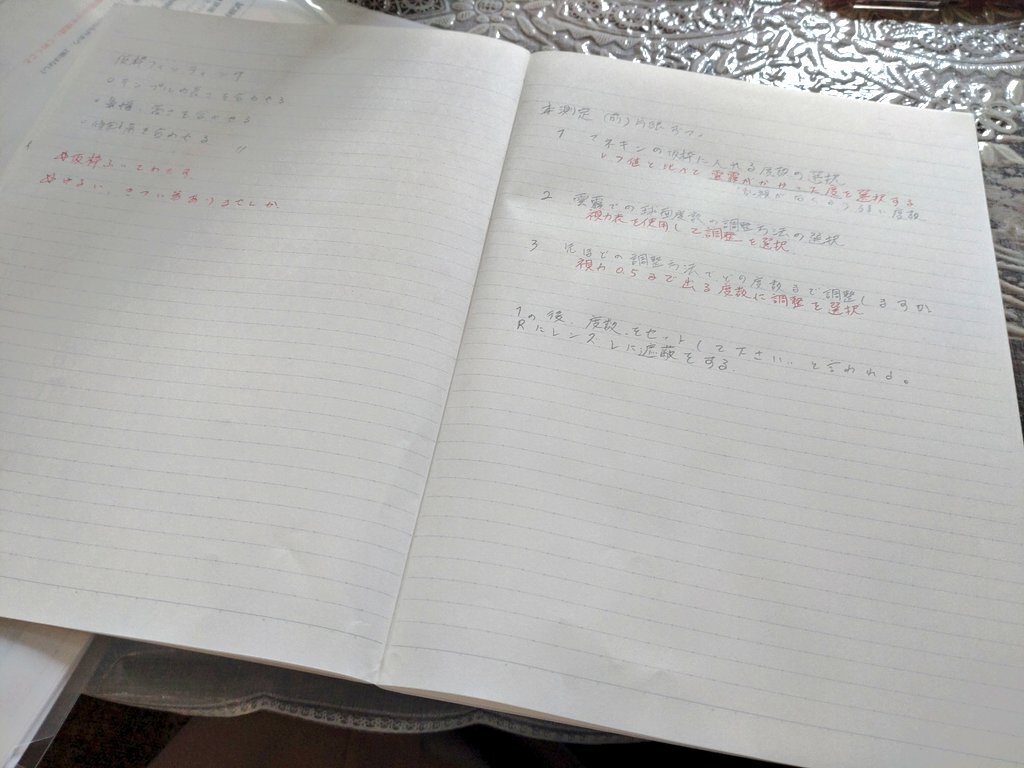 仮枠フィッティング
テンプルの長さを合わせる
鼻幅、高さを合わせる
を合わせる 〃
仮枠ふいてわたす
ゆるい、きつい等ありませんか
本測定 (前) 片眼ずつ
1 マネキンの仮枠に入れる度数の選択
レフ値と比べて雲霧がかかった度を選択する
度数
2 雲霧での球面度数の調整方法の選択
視力表を使用して調整を選択
3 先ほどの調整方法でどの度数まで調整しますか
視力0.5まで出る度数に調整を選択
1の後、度数をセットして下さい、と言われる。
Rにレンズ Lに遮蔽をする